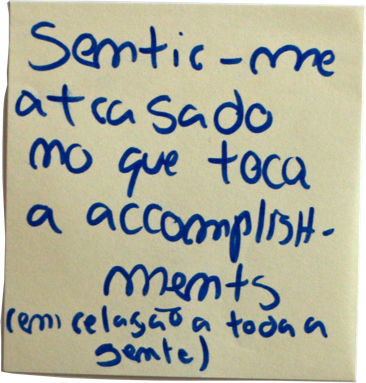 Sentir-me
atrasado
no que toca
a accomplish-
ments
(em relação a toda a
gente)